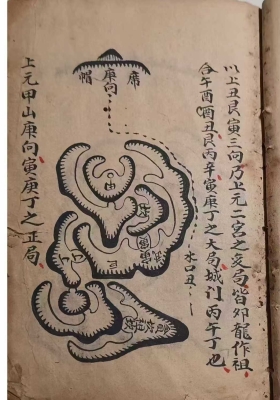 以上丑艮寅三向乃上元二宮之亥局皆卯龍作祖
合午酉酉丑艮丙辛寅庚丁之大局城门丙午丁也
水口丑
帽 庚向 席
上元甲山庚向寅庚丁之正局